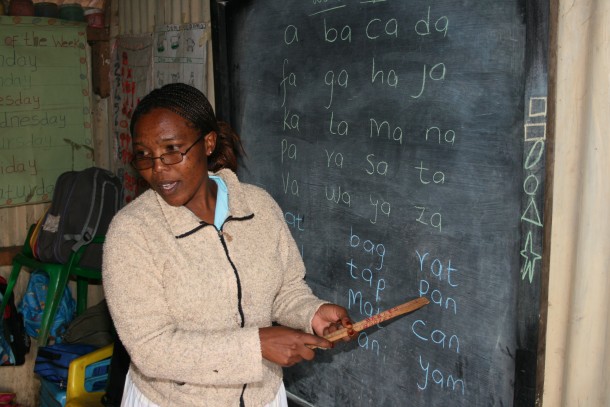 of the Week
nday
esday
dnesday
rsday
day
a ba ca da
fa ga ha ja
ka la ma na
pa ra sa ta
va wa ya za
at bag rat
tap pan
can
yam